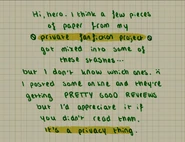 Hi, hero. I think a few pieces
of paper from my
private fanfiction project
got mixed into some of
these stashes...
but I don't know which ones. :(
I posted some online and they're
getting PRETTY GOOD REVIEWS
but I'd appreciate it if
you didn't read them.
it's a privacy thing.